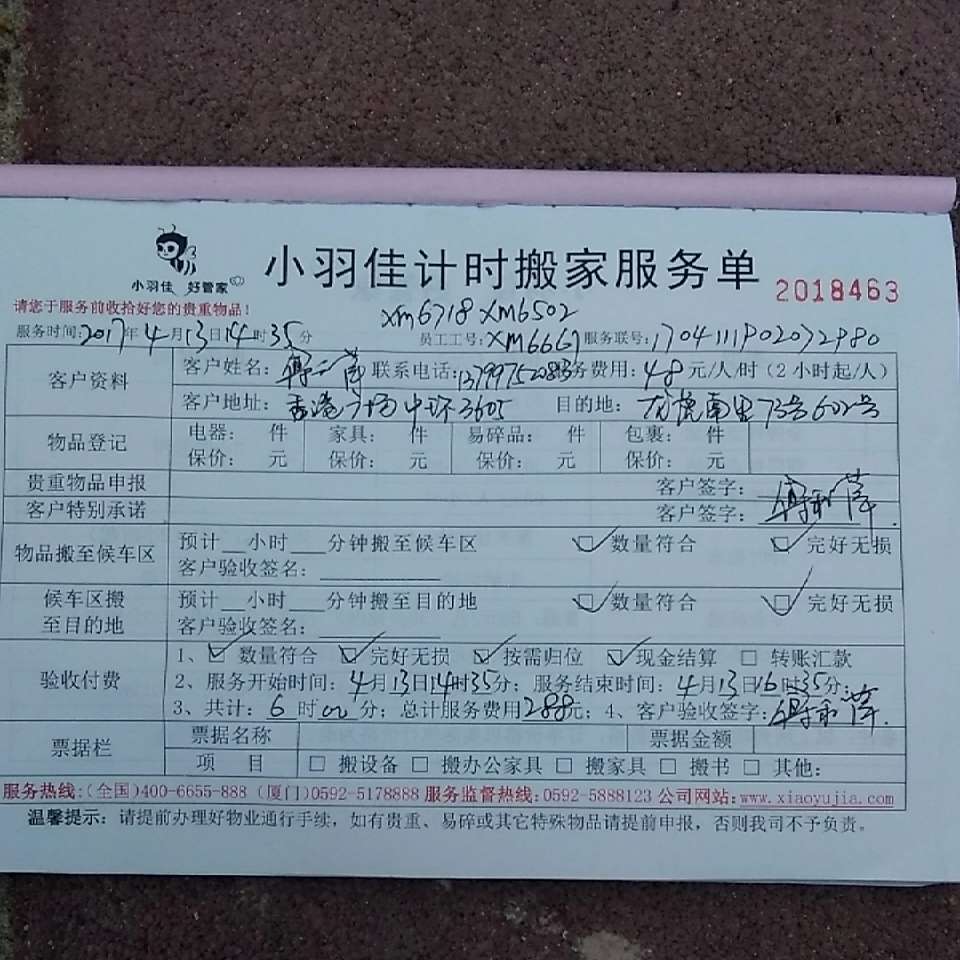 小羽佳 好管家
小羽佳计时搬家服务单
2018463
请您于服务前收拾好您的贵重物品!
xm6718 xm6502
服务时间:2017年4月13日14时35分 员工工号:XM6661 服务联号:
客户资料 客户姓名: 联系电话: 服务费用:48元/人/时(2小时起/人)
客户地址:香港广场中环3605 目的地: 南里73号602号
物品登记 电器: 件 家具: 件 易碎品: 件 包裹: 件
保价: 元 保价: 元 保价: 元 保价: 元
贵重物品申报 客户签字:
客户特别承诺 客户签字:
物品搬至候车区 预计__小时___分钟搬至候车区 ☑数量符合 ☑完好无损
客户验收签名:
候车区搬至目的地 预计__小时___分钟搬至目的地 ☑数量符合 ☑完好无损
客户验收签名:
验收付费 1、☑数量符合 ☑完好无损 ☑按需归位 ☑现金结算 □转账汇款
2、服务开始时间:4月13日14时35分;服务结束时间:4月13日16时35分;
3、共计:6时00分;总计服务费用288元;4、客户验收签字:
票据栏 票据名称 票据金额
项 目 □搬设备 □搬办公家具 □搬家具 □搬书 □其他:
服务热线:(全国)400-6655-888 (厦门)0592-5178888 服务监督热线:0592-5888123 公司网站:www.xiaoyujia.com
温馨提示:请提前办理好物业通行手续,如有贵重、易碎或其它特殊物品请提前申报,否则我司不予负责。